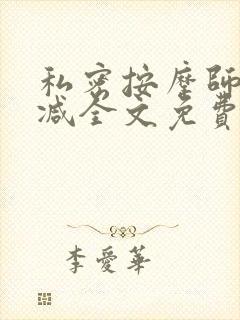 私密按摩師
减全文免費
李愛華